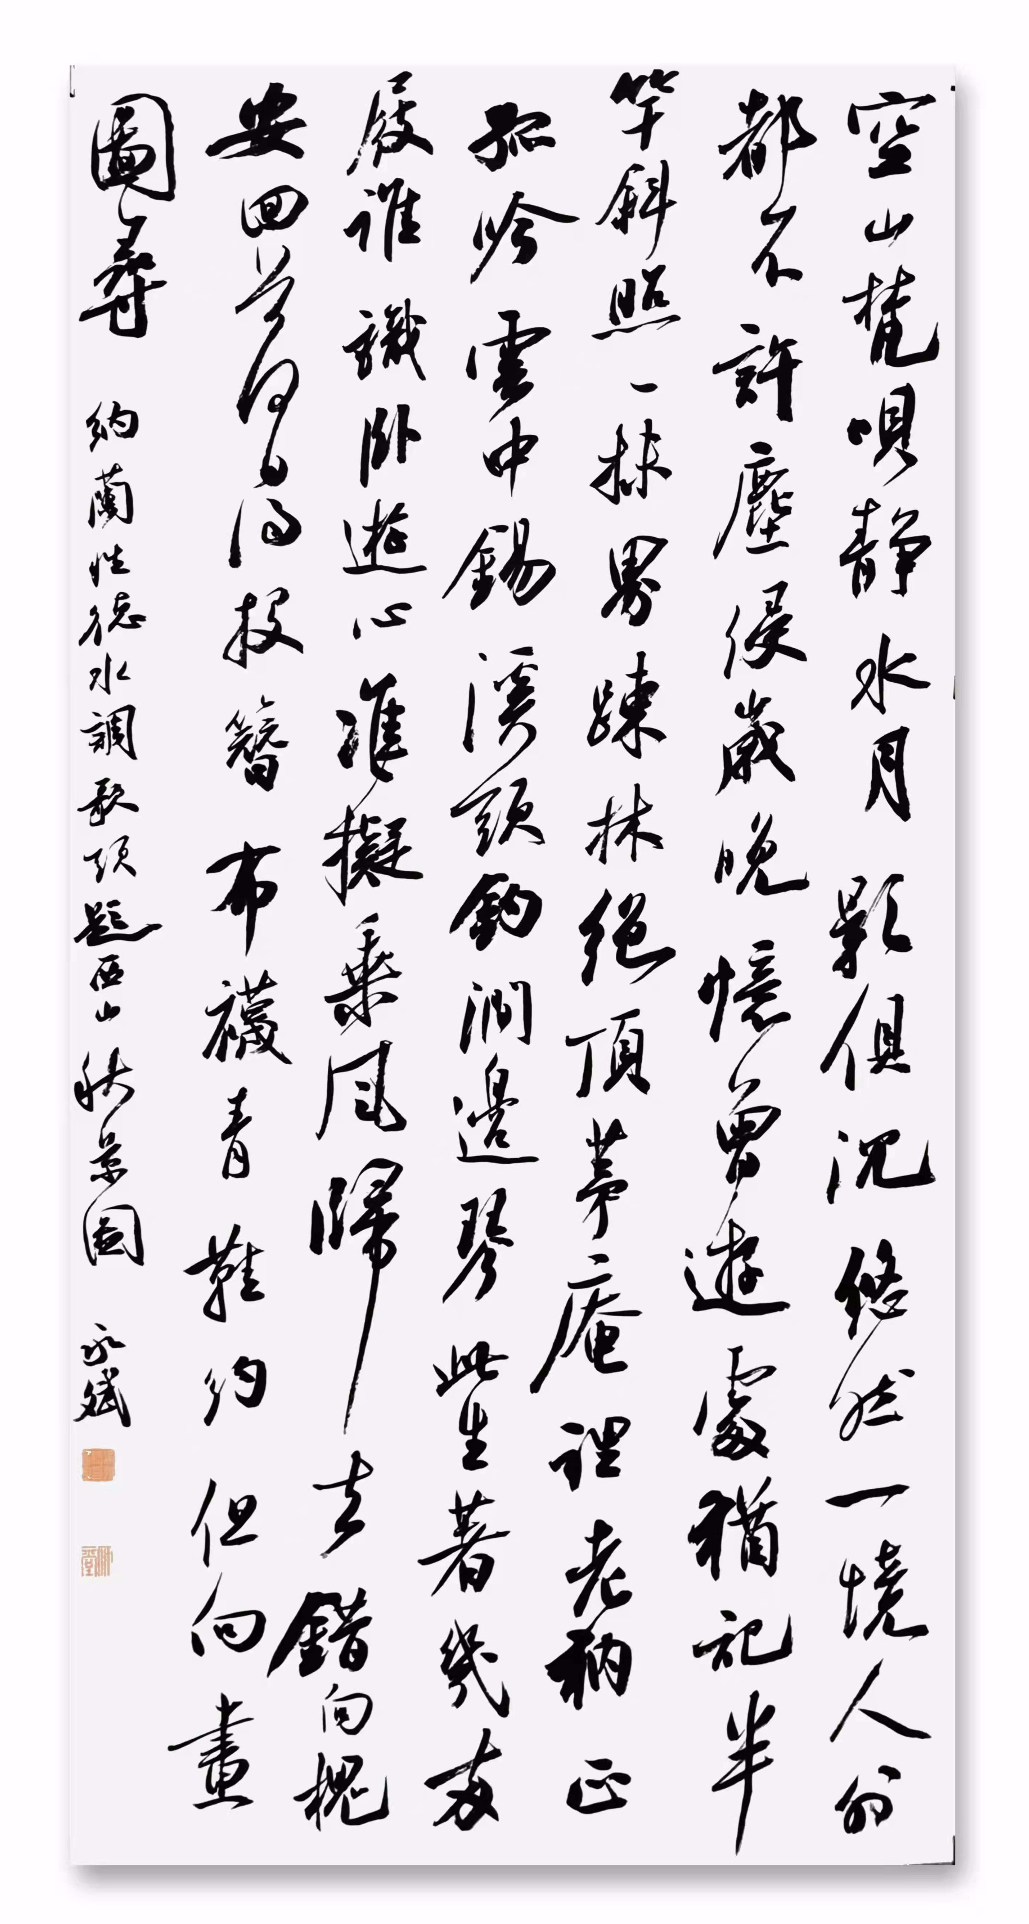 空山梵唄静水月影俱沉悠然一境人外
都不許塵侵歲晚憶曾遊處猶記半
竿斜照一抹界踈林絕頂茅庵裡老衲正
孤吟雲中錫溪頭釣澗邊琴此生著幾兩
屐誰識卧遊心准擬乘風歸去錯向槐
安回首何日得投簪布襪青鞋約但向畫
圖尋 納蘭性德水調歌頭題西山秋景圖 永斌